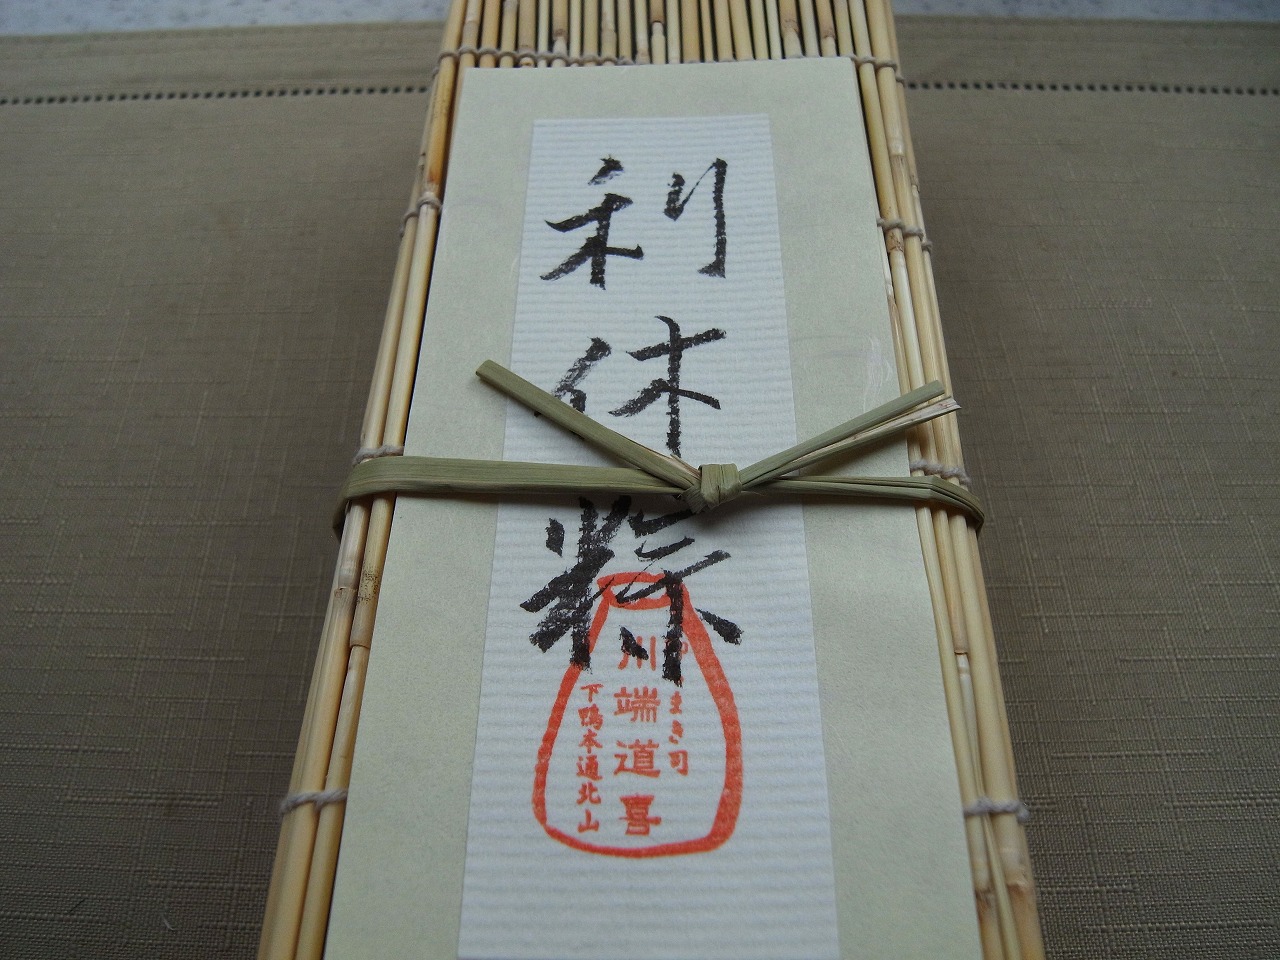 利休粽
まき司
川端道喜
下鴨本通北山